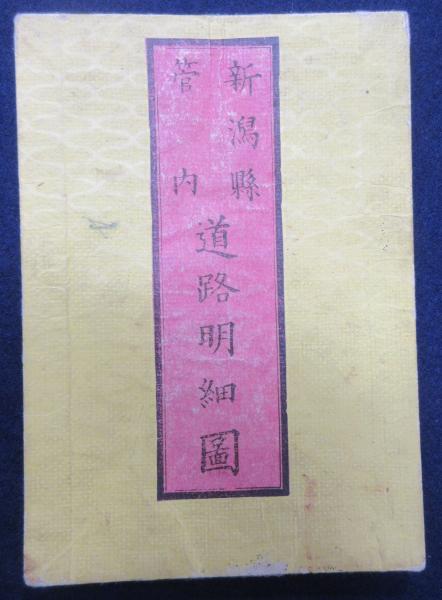 新潟縣
管内
道路明細圖